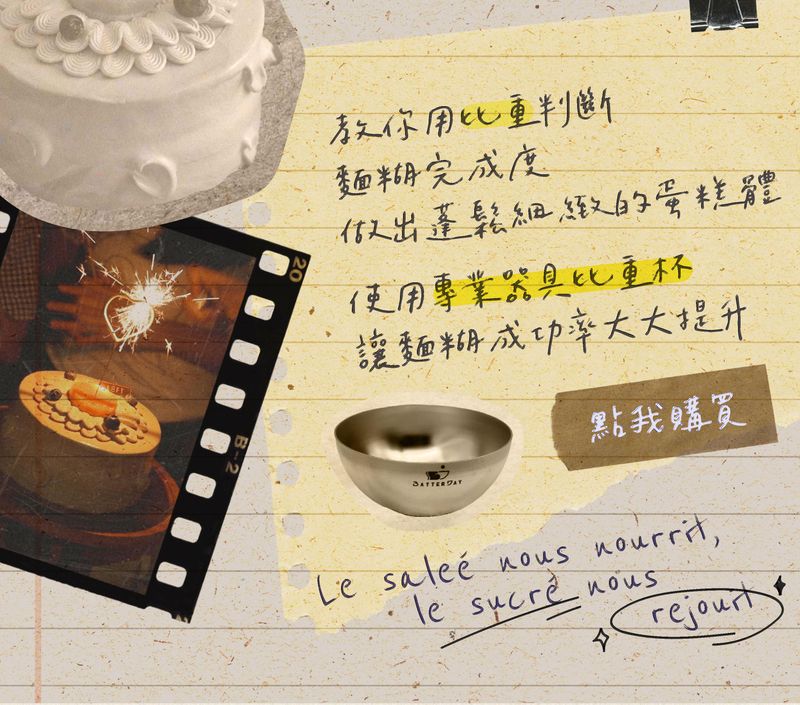 教你用比重判斷
麵糊完成度
做出蓬鬆細緻的蛋糕體
使用專業器具比重杯
讓麵糊成功率大大提升
點我購買
BATTERDAY
20
B-2
Le saleé nous nourrit,
le sucré nous
rejouit